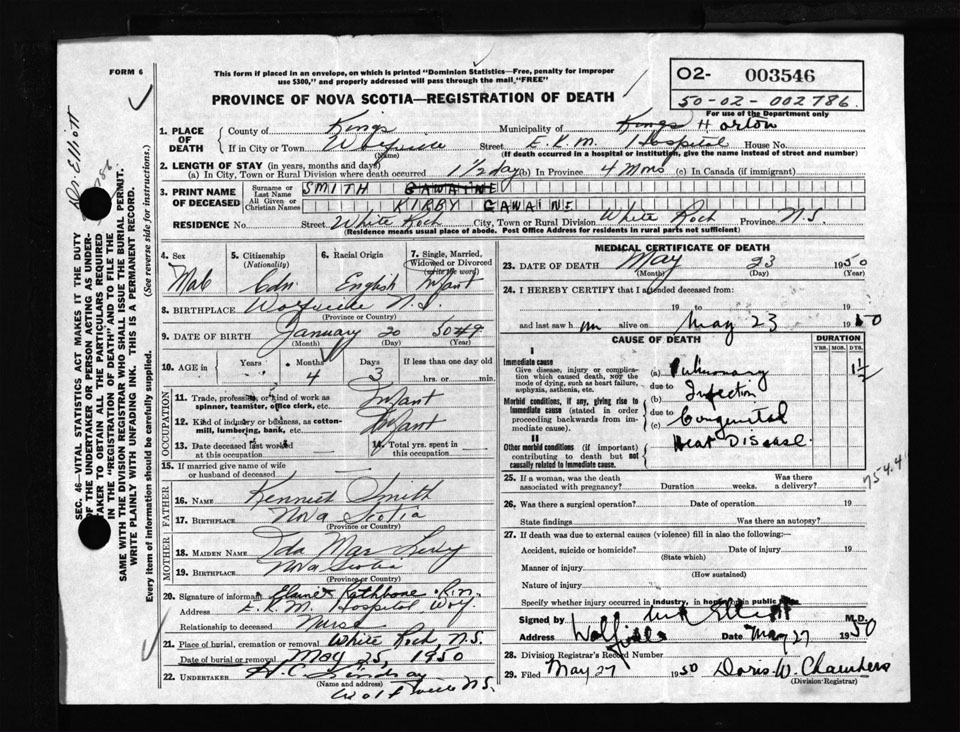 FORM 6
This form if placed in an envelope, on which is printed "Dominion Statistics—Free, penalty for improper
use $300," and properly addressed will pass through the mail "FREE"
O2- 003546
50-02-002786
For use of the Department only
PROVINCE OF NOVA SCOTIA—REGISTRATION OF DEATH
1. PLACE OF DEATH
County of Kings Municipality of Kings Horton
If in City or Town Wolfville Street E.K.M. Hospital House No.
(Name) (If death occurred in a hospital or institution, give the name instead of street and number)
2. LENGTH OF STAY (in years, months and days)
(a) In City, Town or Rural Division where death occurred 1½ day (b) In Province 4 Mos (c) In Canada (if immigrant)
3. PRINT NAME OF DECEASED
Surname or Last Name SMITH GAWAINE
All Given or Christian Names KIRBY GAWAINE
RESIDENCE No. Street White Rock City, Town or Rural Division White Rock Province N.S.
(Residence means usual place of abode. Post Office Address for residents in rural parts not sufficient)
4. Sex
Male
5. Citizenship (Nationality)
Cdn.
6. Racial Origin
English
7. Single, Married, Widowed or Divorced (write the word)
Infant
8. BIRTHPLACE Wolfville N.S.
(Province or Country)
9. DATE OF BIRTH January 20 50 49
(Month) (Day) (Year)
10. AGE in
Years Months Days If less than one day old
4 3 hrs. or min.
OCCUPATION
11. Trade, profession or kind of work as spinner, teamster, office clerk, etc. Infant
12. Kind of industry or business, as cotton-mill, lumbering, bank, etc. Infant
13. Date deceased last worked at this occupation
14. Total yrs. spent in this occupation
15. If married give name of wife or husband of deceased
FATHER
16. NAME Kenneth Smith
17. BIRTHPLACE Nova Scotia
(Province or Country)
MOTHER
18. MAIDEN NAME Ida Mae Levy
19. BIRTHPLACE Nova Scotia
(Province or Country)
20. Signature of informant Elaine Rathbone R.N.
Address E.K.M. Hospital Wolf.
Relationship to deceased Nurse
21. Place of burial, cremation or removal White Rock, N.S.
Date of burial or removal May 25, 1950
22. UNDERTAKER H.C. Lindsay
(Name and address)
Wolfville N.S.
MEDICAL CERTIFICATE OF DEATH
23. DATE OF DEATH May 23 1950
(Month) (Day) (Year)
24. I HEREBY CERTIFY that I attended deceased from:
19 to 19
and last saw him alive on May 23 1950
CAUSE OF DEATH
DURATION
YRS. MOS. DYS.
I
Immediate cause
Give disease, injury or complication which caused death, NOR the mode of dying, such as heart failure, asphyxia, asthenia, etc.
(a) Pulmonary 1½
due to
(b) Infection
Morbid conditions, if any, giving rise to immediate cause (stated in order proceeding backwards from immediate cause).
due to
(c) Congenital
II
Heart Disease
Other morbid conditions (if important) contributing to death but not causally related to immediate cause.
754.4
25. If a woman, was the death associated with pregnancy? Duration weeks. Was there a delivery?
26. Was there a surgical operation? Date of operation 19
State findings Was there an autopsy?
27. If death was due to external causes (violence) fill in also the following:—
Accident, suicide or homicide? Date of injury 19
(State which)
Manner of injury
(How sustained)
Nature of injury
Specify whether injury occurred in industry, in home, or in public place
Signed by Elliott M.D.
Address Wolfville Date May 27 1950
28. Division Registrar's Record Number
29. Filed May 27 1950 Doris W. Chambers
(Division Registrar)
Dr. Elliott
SEC. 46—VITAL STATISTICS ACT MAKES IT THE DUTY
OF THE UNDERTAKER OR PERSON ACTING AS UNDERTAKER
TO OBTAIN ALL THE PARTICULARS REQUIRED
IN THE "REGISTRATION OF DEATH" AND TO FILE THE
SAME WITH THE DIVISION REGISTRAR WHO SHALL ISSUE THE BURIAL PERMIT.
WRITE PLAINLY WITH UNFADING INK. THIS IS A PERMANENT RECORD.
Every item of information should be carefully supplied. (See reverse side for instructions.)